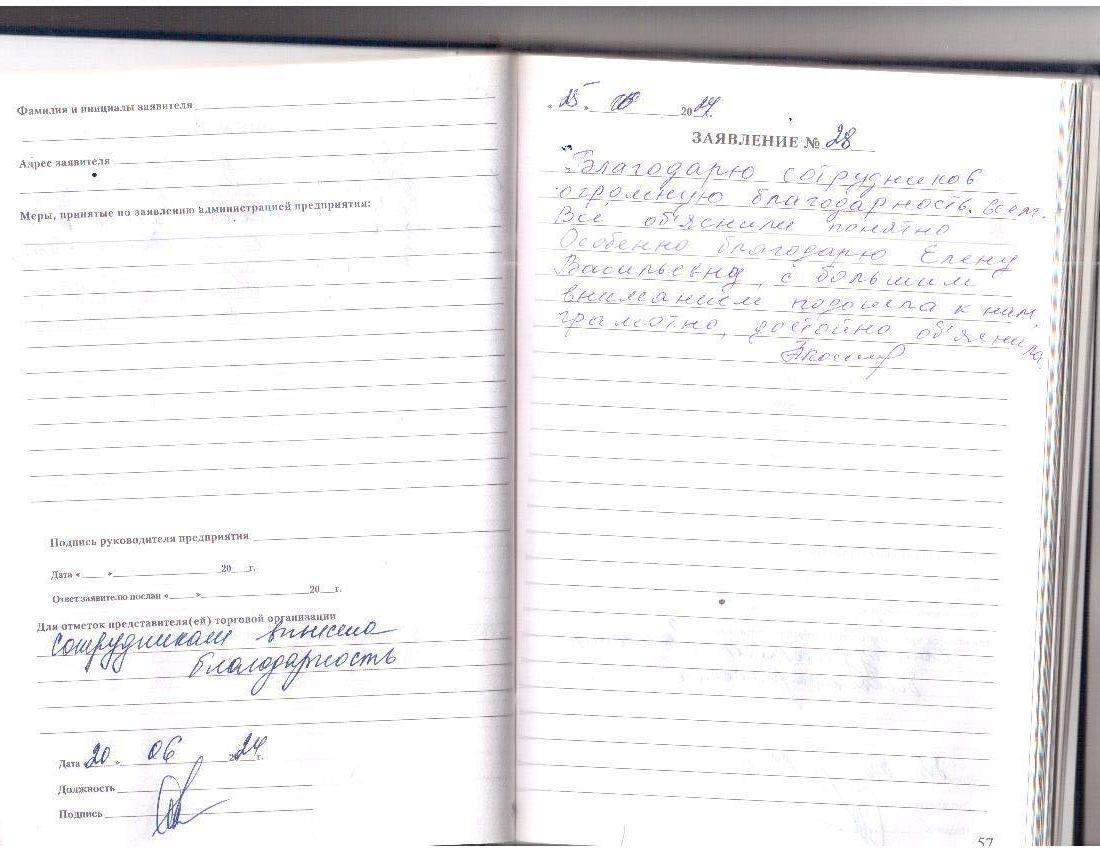 Фамилия и инициалы заявителя
Адрес заявителя
Меры, принятые по заявлению администрацией предприятия:
Подпись руководителя предприятия
Дата « » 20 г.
Ответ заявителю послан « » 20 г.
Для отметок представителя(ей) торговой организации
Сотрудникам вынесена
благодарность
Дата «20» 06 2024г.
Должность
Подпись
«25» 2024г.
ЗАЯВЛЕНИЕ № 28
Благодарю сотрудников
огромную благодарность всем.
Все об'яснили понятно
Особенно благодарю Елену
Васильевну, с большим
вниманием подошла к нам,
грамотно, достойно об'яснила
57